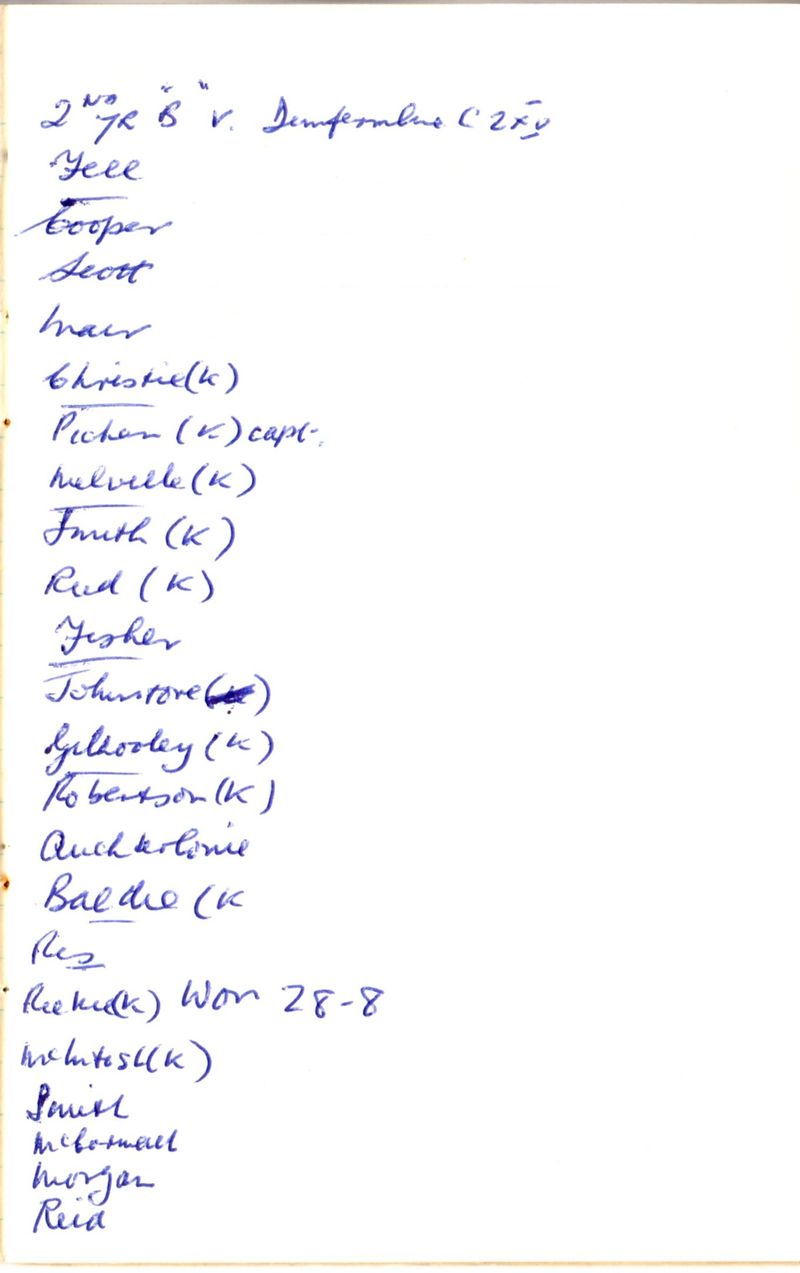 2ND YR "B" v. Dunfermline C 2XV
Fell
Cooper
Scott
Mair
Christie (K)
(K) capt.
Melville (K)
Smith (K)
Reid (K)
Fisher
Johnstone
Gilhooley (K)
Robertson (K)
Auchterlonie
(K
Res
(K) Won 28-8
McIntosh (K)
Smith
McCormack
Morgan
Reid